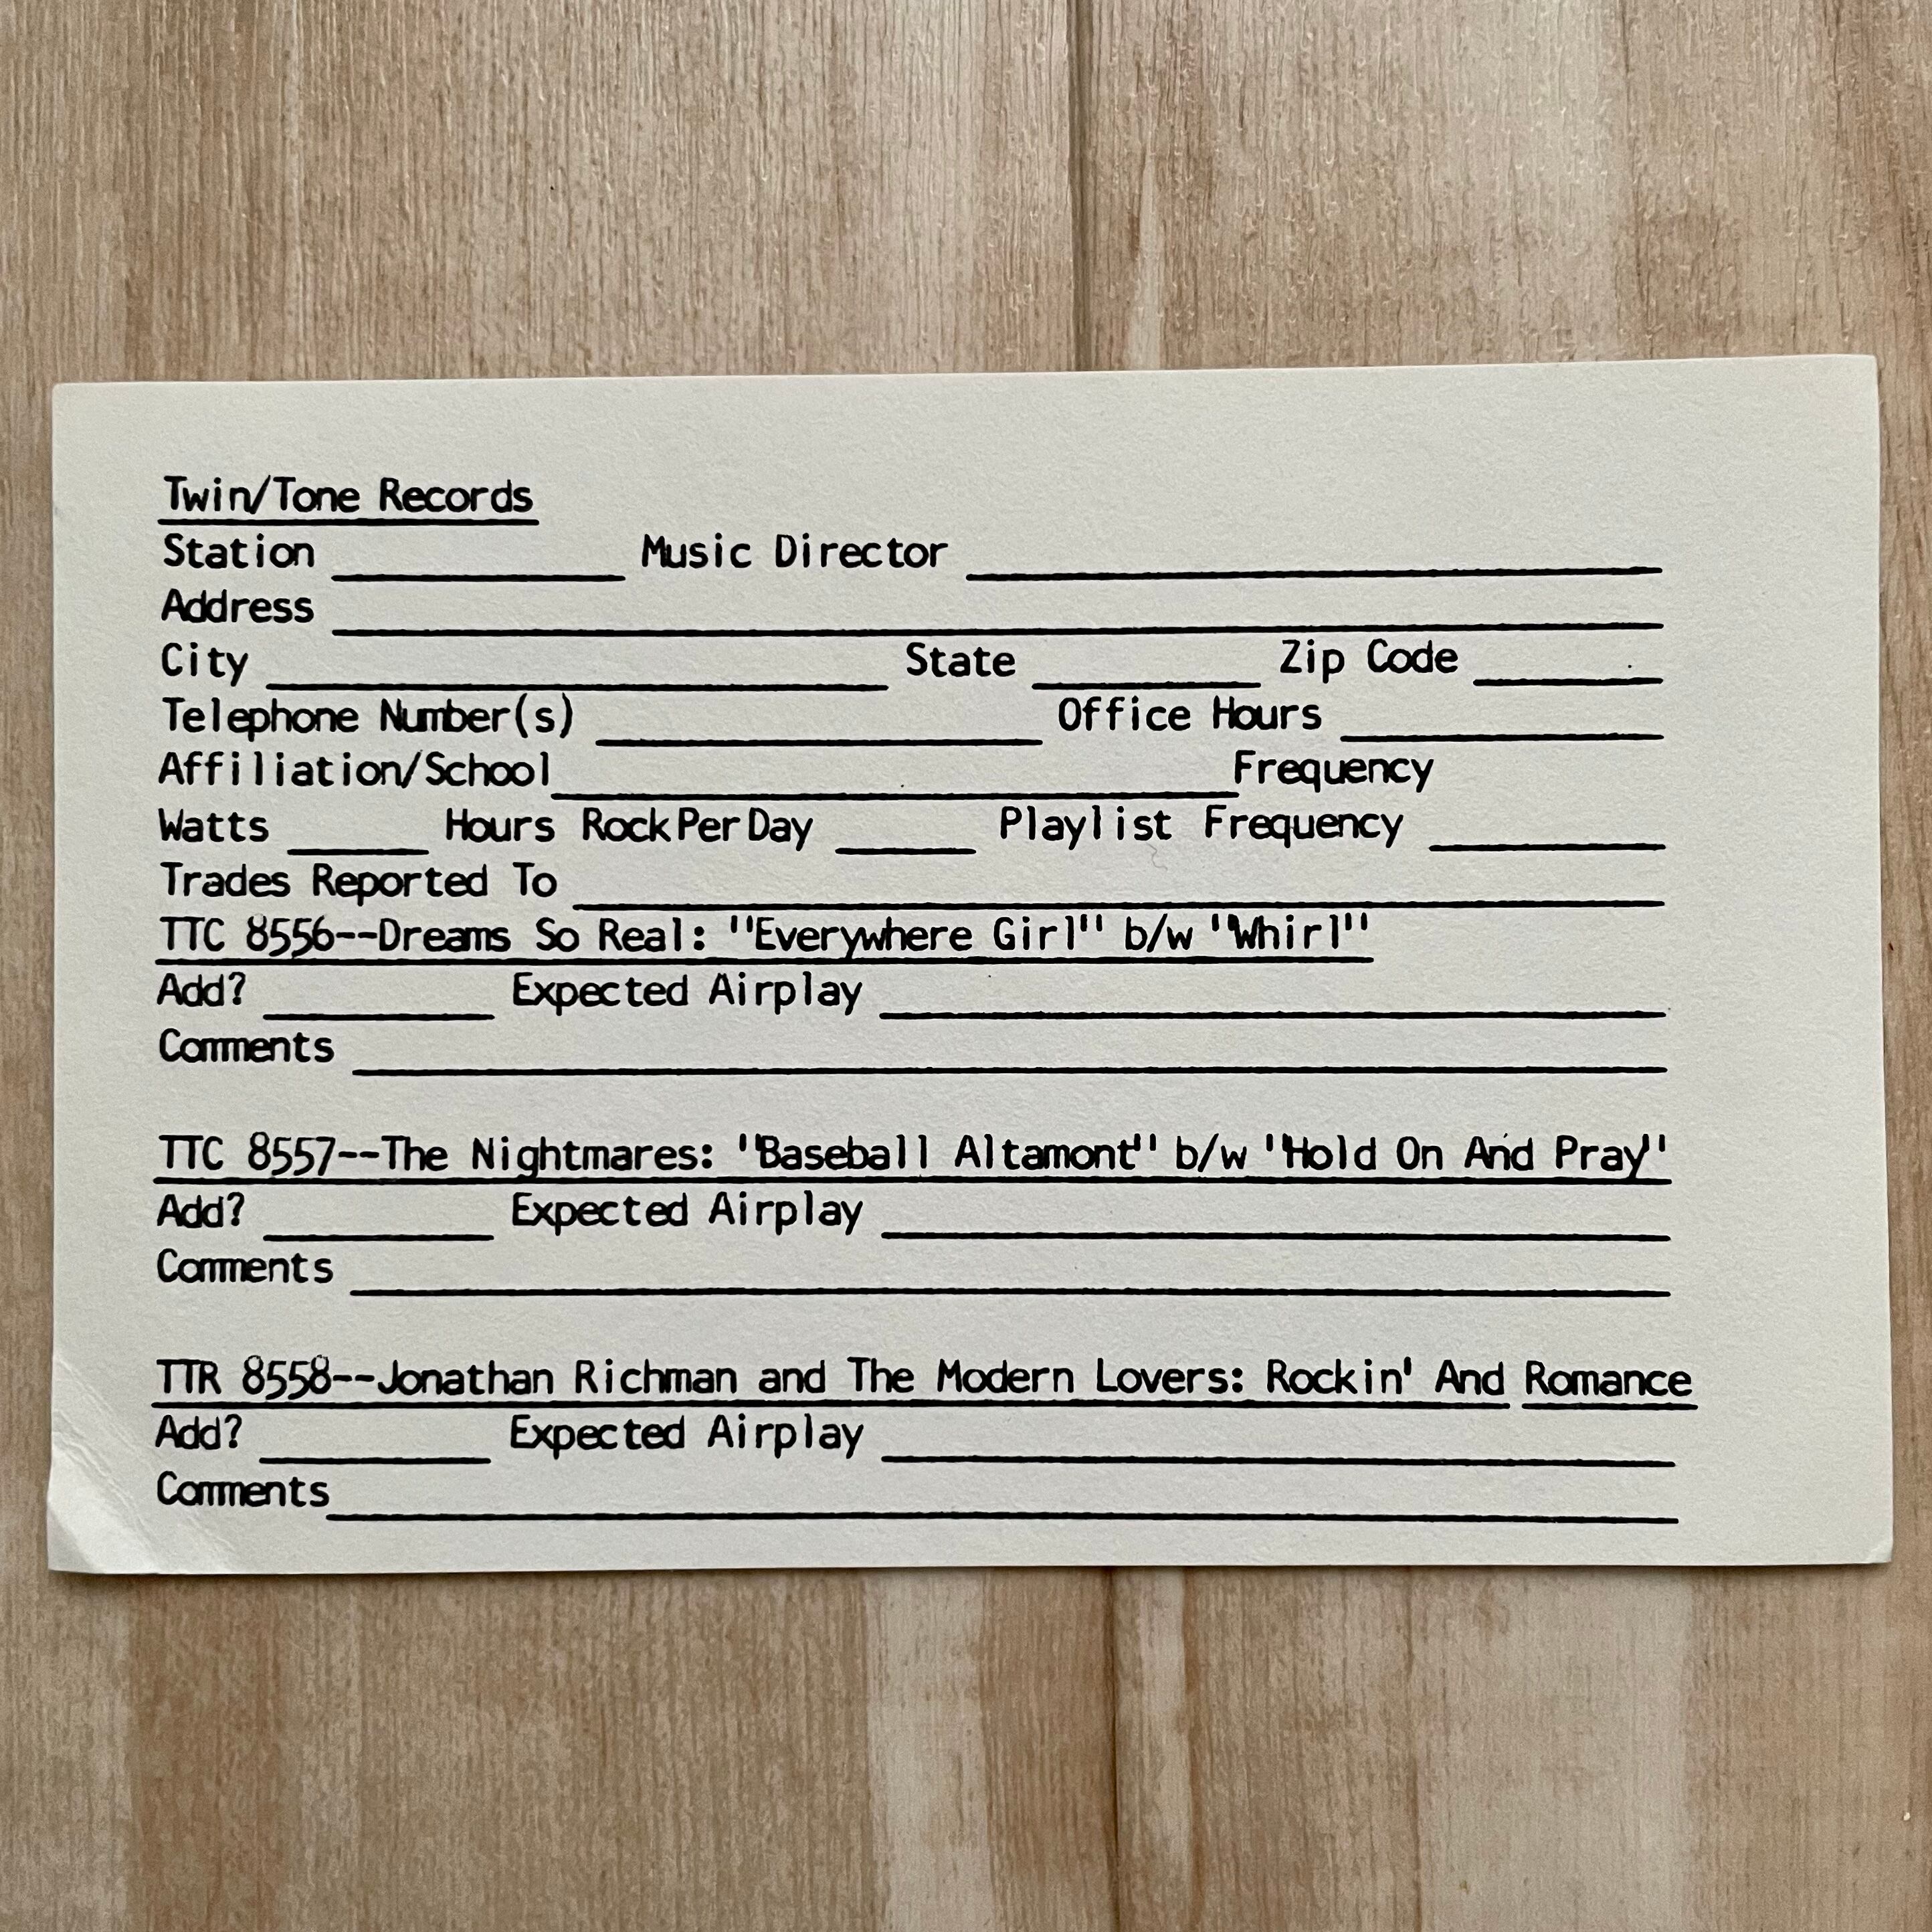 Twin/Tone Records
Station ________ Music Director ____________________
Address ______________________________________
City __________________ State ______ Zip Code _____
Telephone Number(s) _____________ Office Hours _________
Affiliation/School____________________Frequency
Watts ____ Hours Rock Per Day ____ Playlist Frequency ______
Trades Reported To ______________________________
TTC 8556--Dreams So Real: "Everywhere Girl" b/w "Whirl"
Add? ______ Expected Airplay ______________________
Comments ______________________________________
TTC 8557--The Nightmares: "Baseball Altamont" b/w "Hold On And Pray"
Add? ______ Expected Airplay ______________________
Comments ______________________________________
TTR 8558--Jonathan Richman and The Modern Lovers: Rockin' And Romance
Add? ______ Expected Airplay ______________________
Comments______________________________________